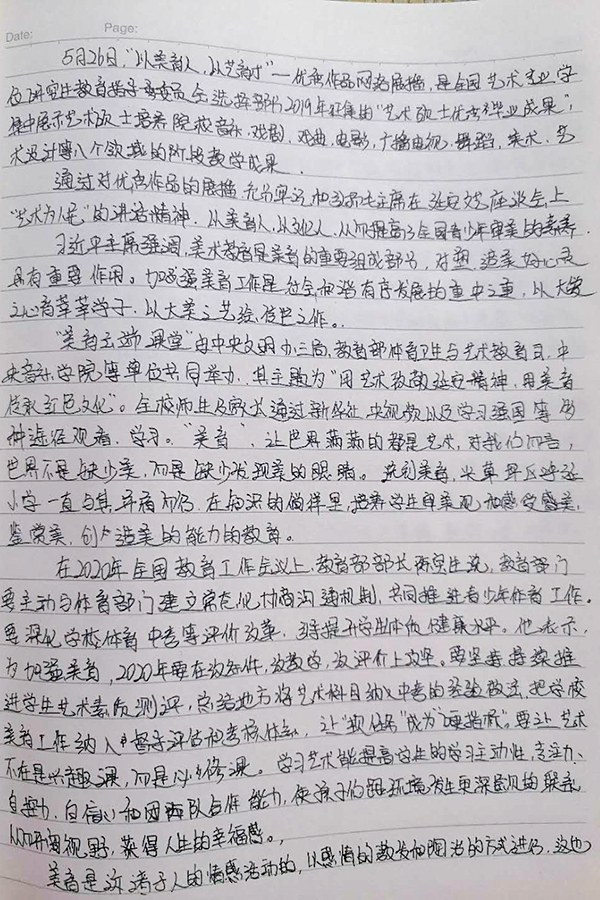 Date: Page:
5月26日,“以美育人,以艺育才”—优秀作品网络展播,是全国艺术专业学
位研究生教育指导委员会选择部分2019年征集的“艺术硕士优秀毕业成果”,
集中展示艺术硕士培养院校音乐、戏剧、戏曲、电影、广播电视、舞蹈、美术、艺
术设计等八个领域的阶段教学成果.
通过对优秀作品的展播 主席在延安文艺座谈会上
“艺术为人民”的讲话精神.以美育人,以文化人,从而提高了全国青少年审美的素养.
习近平主席强调,美术教育是美育的重要组成部分,对塑造美好心灵
具有重要作用。加强美育工作是社会和谐有序发展的重中之重,以大爱
之心育莘莘学子,以大美之艺绘传世之作。.
“美育云端课堂”由中央文明办三局,教育部体育卫生与艺术教育司、中
央音乐学院等单位共同举办.其主题为“用艺术致敬延安精神,用美育
传承红色文化”。全校师生及家长通过新华社、央视频以及学习强国等多
种途径观看、学习。“美育”,让世界满满的都是艺术,对我们而言,
世界不是缺少美,而是缺少发现美的眼睛。 美育,
小学一直与其 ,在 的 样里,培养学生审美观和感受感美,
鉴赏美,创造美的能力的教育。
在2020年全国教育工作会议上,教育部部长陈宝生说,教育部门
要主动与体育部门建立常态化协商沟通机制,共同推进青少年体育工作.
要深化学校体育中考等评价改革,提升学生体质健康水平。他表示,
为加强美育,2020年要在改条件,改教学,改评价上攻坚。要坚持持续推
进学生艺术素质测评,总结地方将艺术科目纳入中考的经验做法,把学校
美育工作纳入督导评估和考核体系,让“软任务”成为“硬指标”。要让艺术
不在是兴趣课,而是必修课。学习艺术能提高学生的学习主动性,专注力、
自控力、自信心和团队合作能力,使孩子们跟环境发生更深层次的联系,
从而开阔视野,获得人生的幸福感。,
美育是 诸于人的情感活动的,以感情的激发和陶冶的方式进行,这也